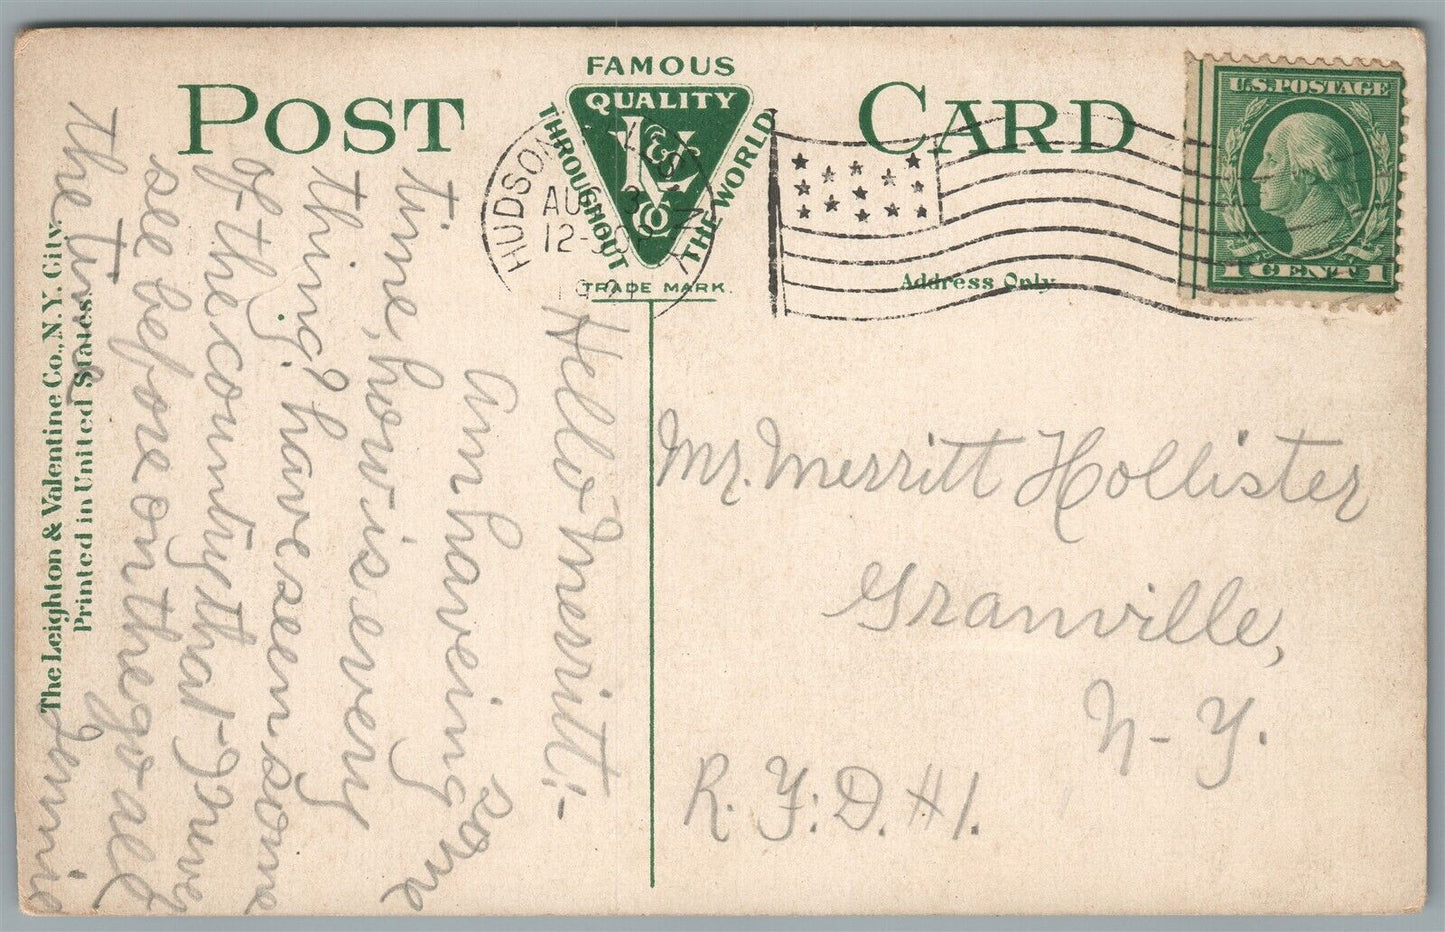 POST CARD
FAMOUS
QUALITY
THROUGHOUT
THE WORLD
L & V
Co
TRADE MARK
HUDSON
AU 3
12-30P
1921
N.Y.
U.S. POSTAGE
1 CENT 1
Address Only
The Leighton & Valentine Co., N.Y. City.
Printed in United States.
Hello Merritt:-
Am having some
time, how is every
thing? have seen some
of the country that I never
see before on the go all
the time
Jennie
Mr. Merritt Hollister
Granville,
N-Y.
R.F.D. #1.